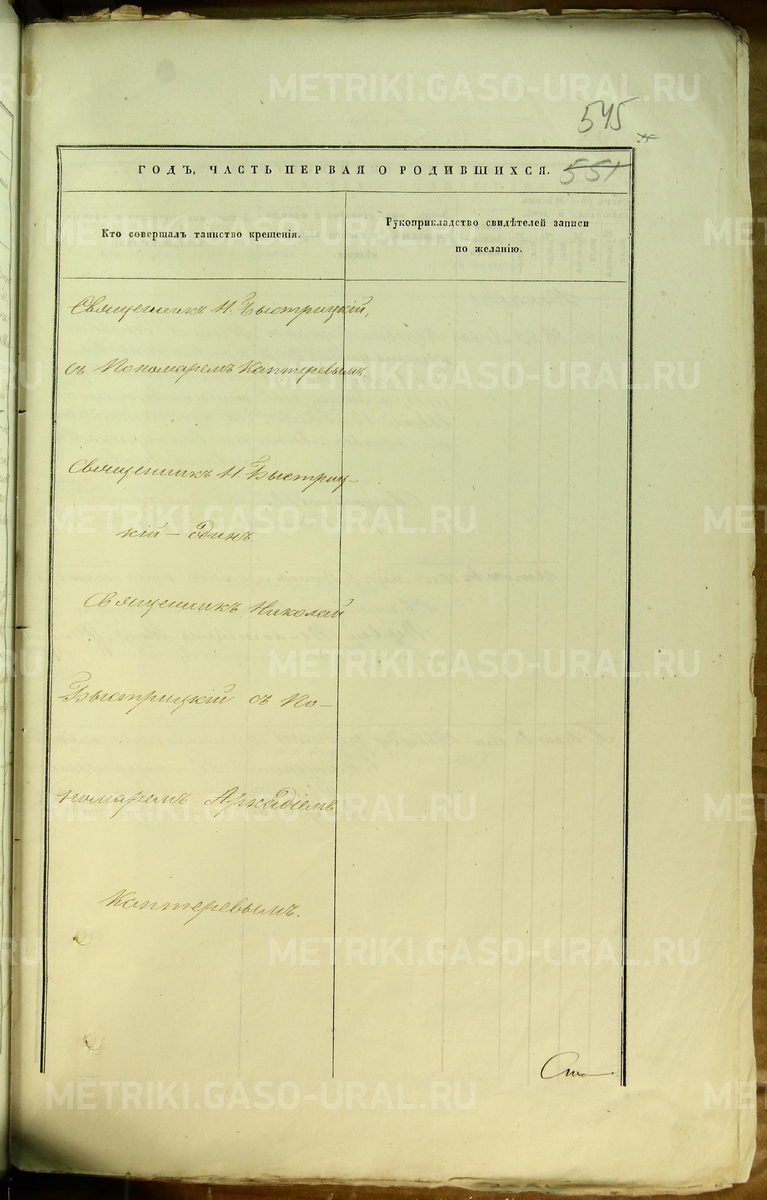 545
ГОДЪ, ЧАСТЬ ПЕРВАЯ О РОДИВШИХСЯ.
551
Кто совершалъ таинство крещенія.
Рукоприкладство свидѣтелей записи
по желанію.
Священникъ Н. Быстрицкій,
съ Пономаремъ Каптеревымъ.
Священникъ Н. Быстриц-
кій - одинъ
Священникъ Николай
Быстрицкій съ По-
номаремъ Аркадіемъ
Каптеревымъ.
METRIKI.GASO-URAL.RU